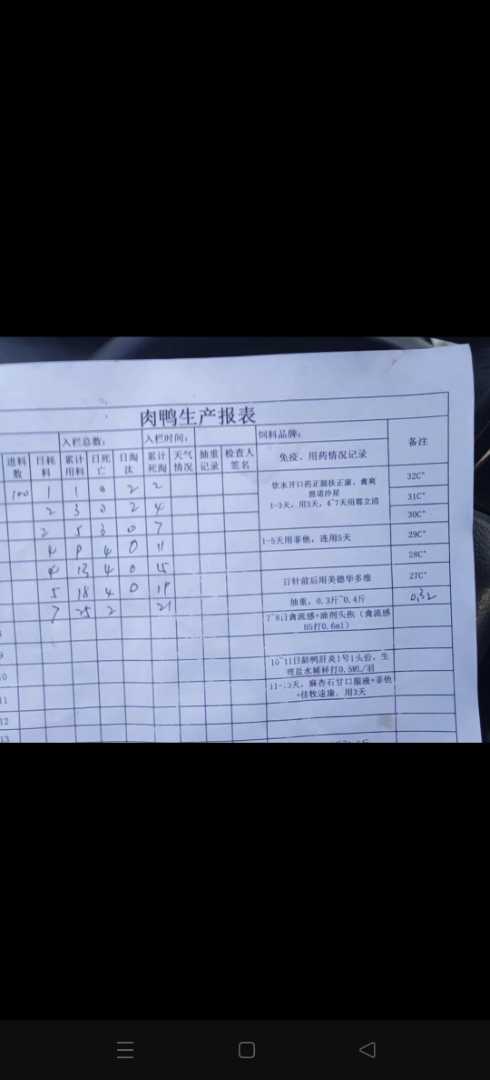 肉鸭生产报表
入栏总数： 入栏时间： 饲料品牌： 备注
进料数 日耗料 累计用料 日死亡 日淘汰 累计死淘 天气情况 抽重记录 检查人签名 免疫、用药情况记录
100 1 1 0 2 2 32C°
2 3 0 2 4 1-3天，用3天，4~7天用 31C°
2 5 3 0 7 30C°
4 9 4 0 11 1-5天用 ，连用5天 29C°
4 13 4 0 15 28C°
5 18 4 0 19 打针前后用美德华多维 27C°
7 25 2 21 抽重，0.3斤~0.4斤 0.32
7~8日禽流感+油剂头孢（禽流感
H5打0.6ml）
9
10 10~11日龄鸭肝炎1号1头份，生
理盐水稀释打0.5ML/羽
11 麻杏石甘口服液+
用3天
12
13